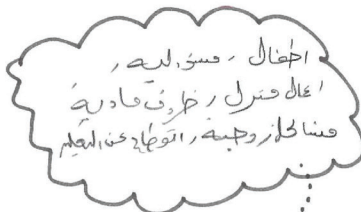 اطفال ، مسؤوليه ،
اعمال منزل ، ظروف مادية
مشاكل زوجية ، انقطاع عن التعليم